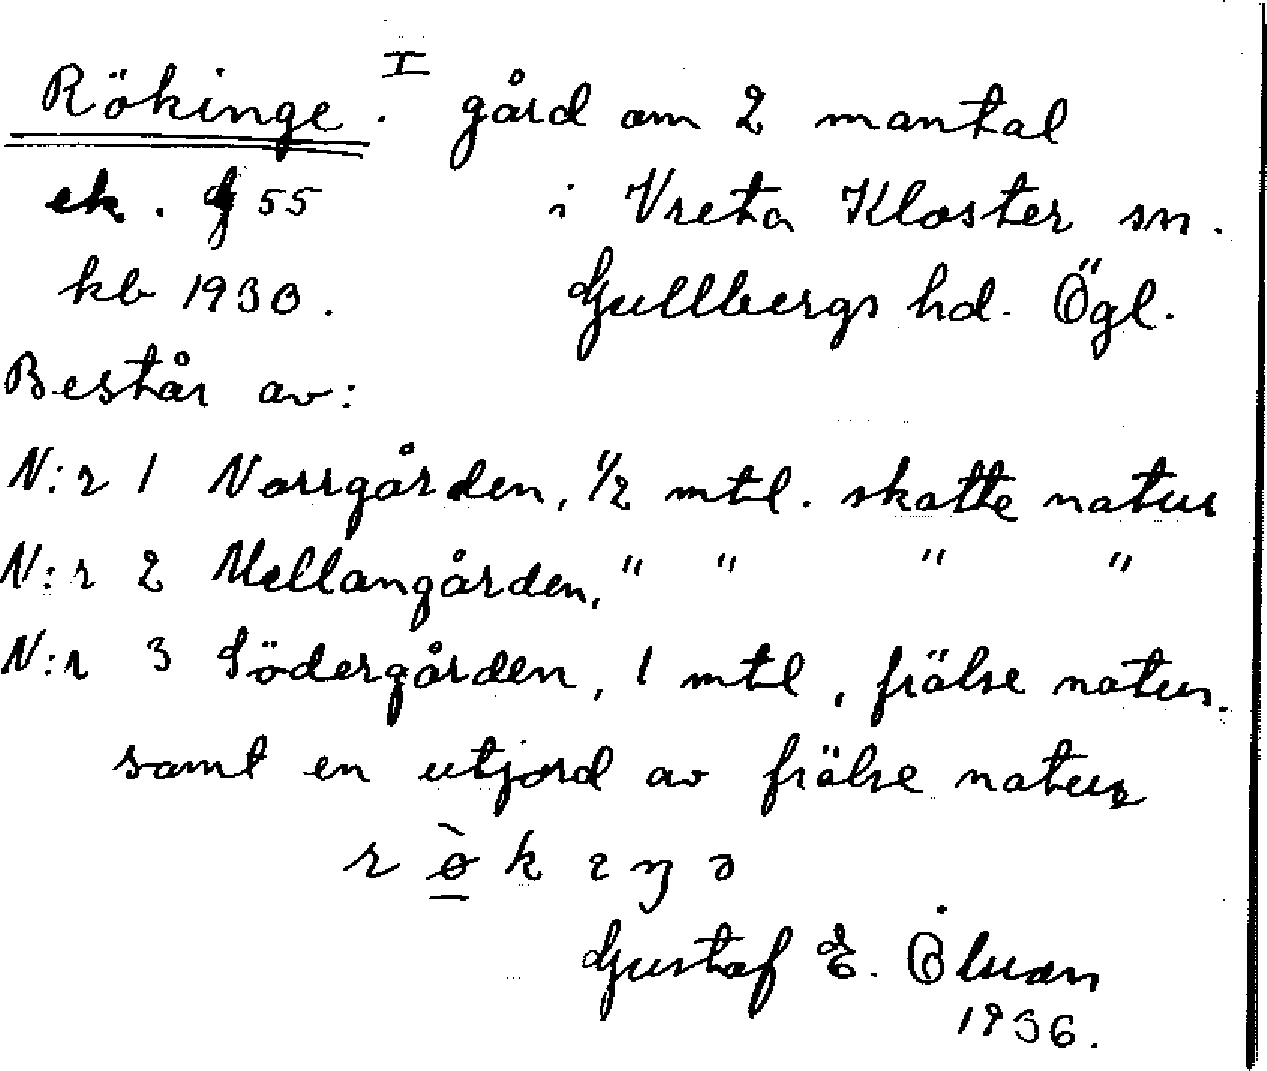 Rökinge. I gård om 2 mantal
ek. G 55 i Vreta Kloster sn.
kb 1930. Gullbergs hd. Ögl.
Består av:
N:r 1 Norrgården, 1/2 mtl. skatte natur
N:r 2 Mellangården, " " " "
N:r 3 Södergården, 1 mtl, frälse natur.
samt en utjord av frälse natur
Gustaf E.
1936.